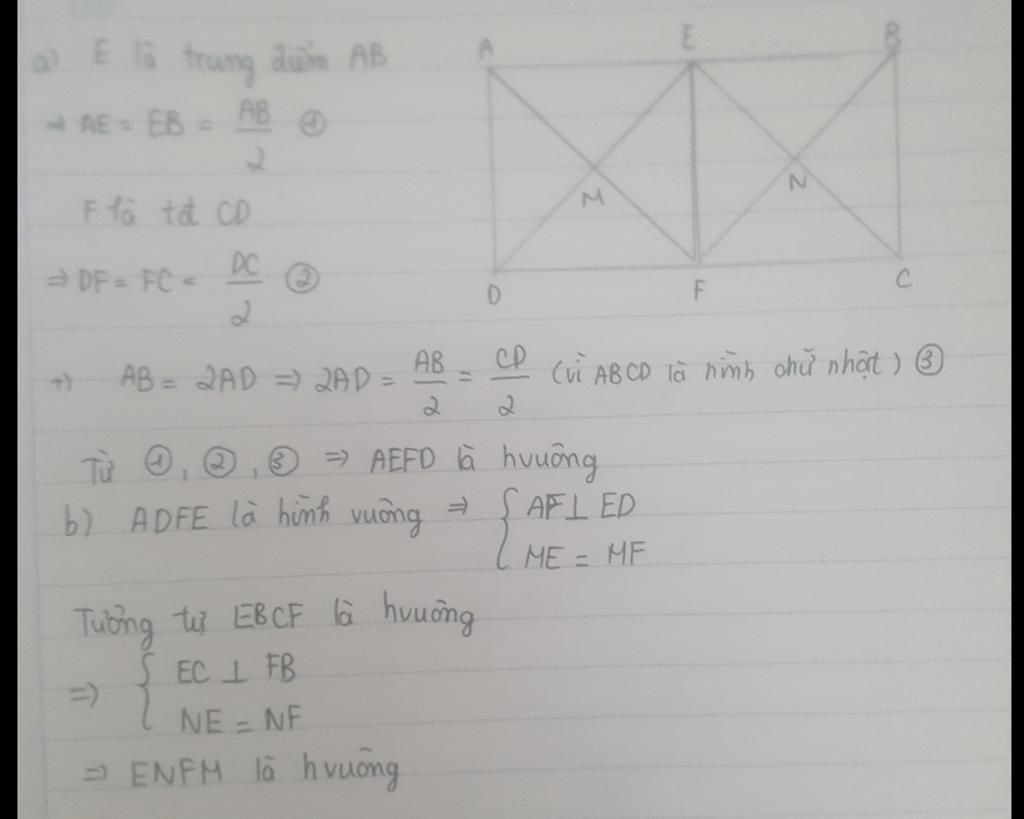 a) E là trung điểm AB
⇒ AE = EB = AB/2 ①
F là tđ CD
⇒ DF = FC = DC/2 ②
+) AB = 2AD ⇒ 2AD = AB/2 = CD/2 (vì ABCD là hình chữ nhật) ③
Từ ①, ②, ③ ⇒ AEFD là hvuông
b) ADFE là hình vuông ⇒ { AF ⊥ ED
ME = MF
Tương tự EBCF là hvuông
⇒ { EC ⊥ FB
NE = NF
⇒ ENFM là hvuông
A E B
M N
D F C